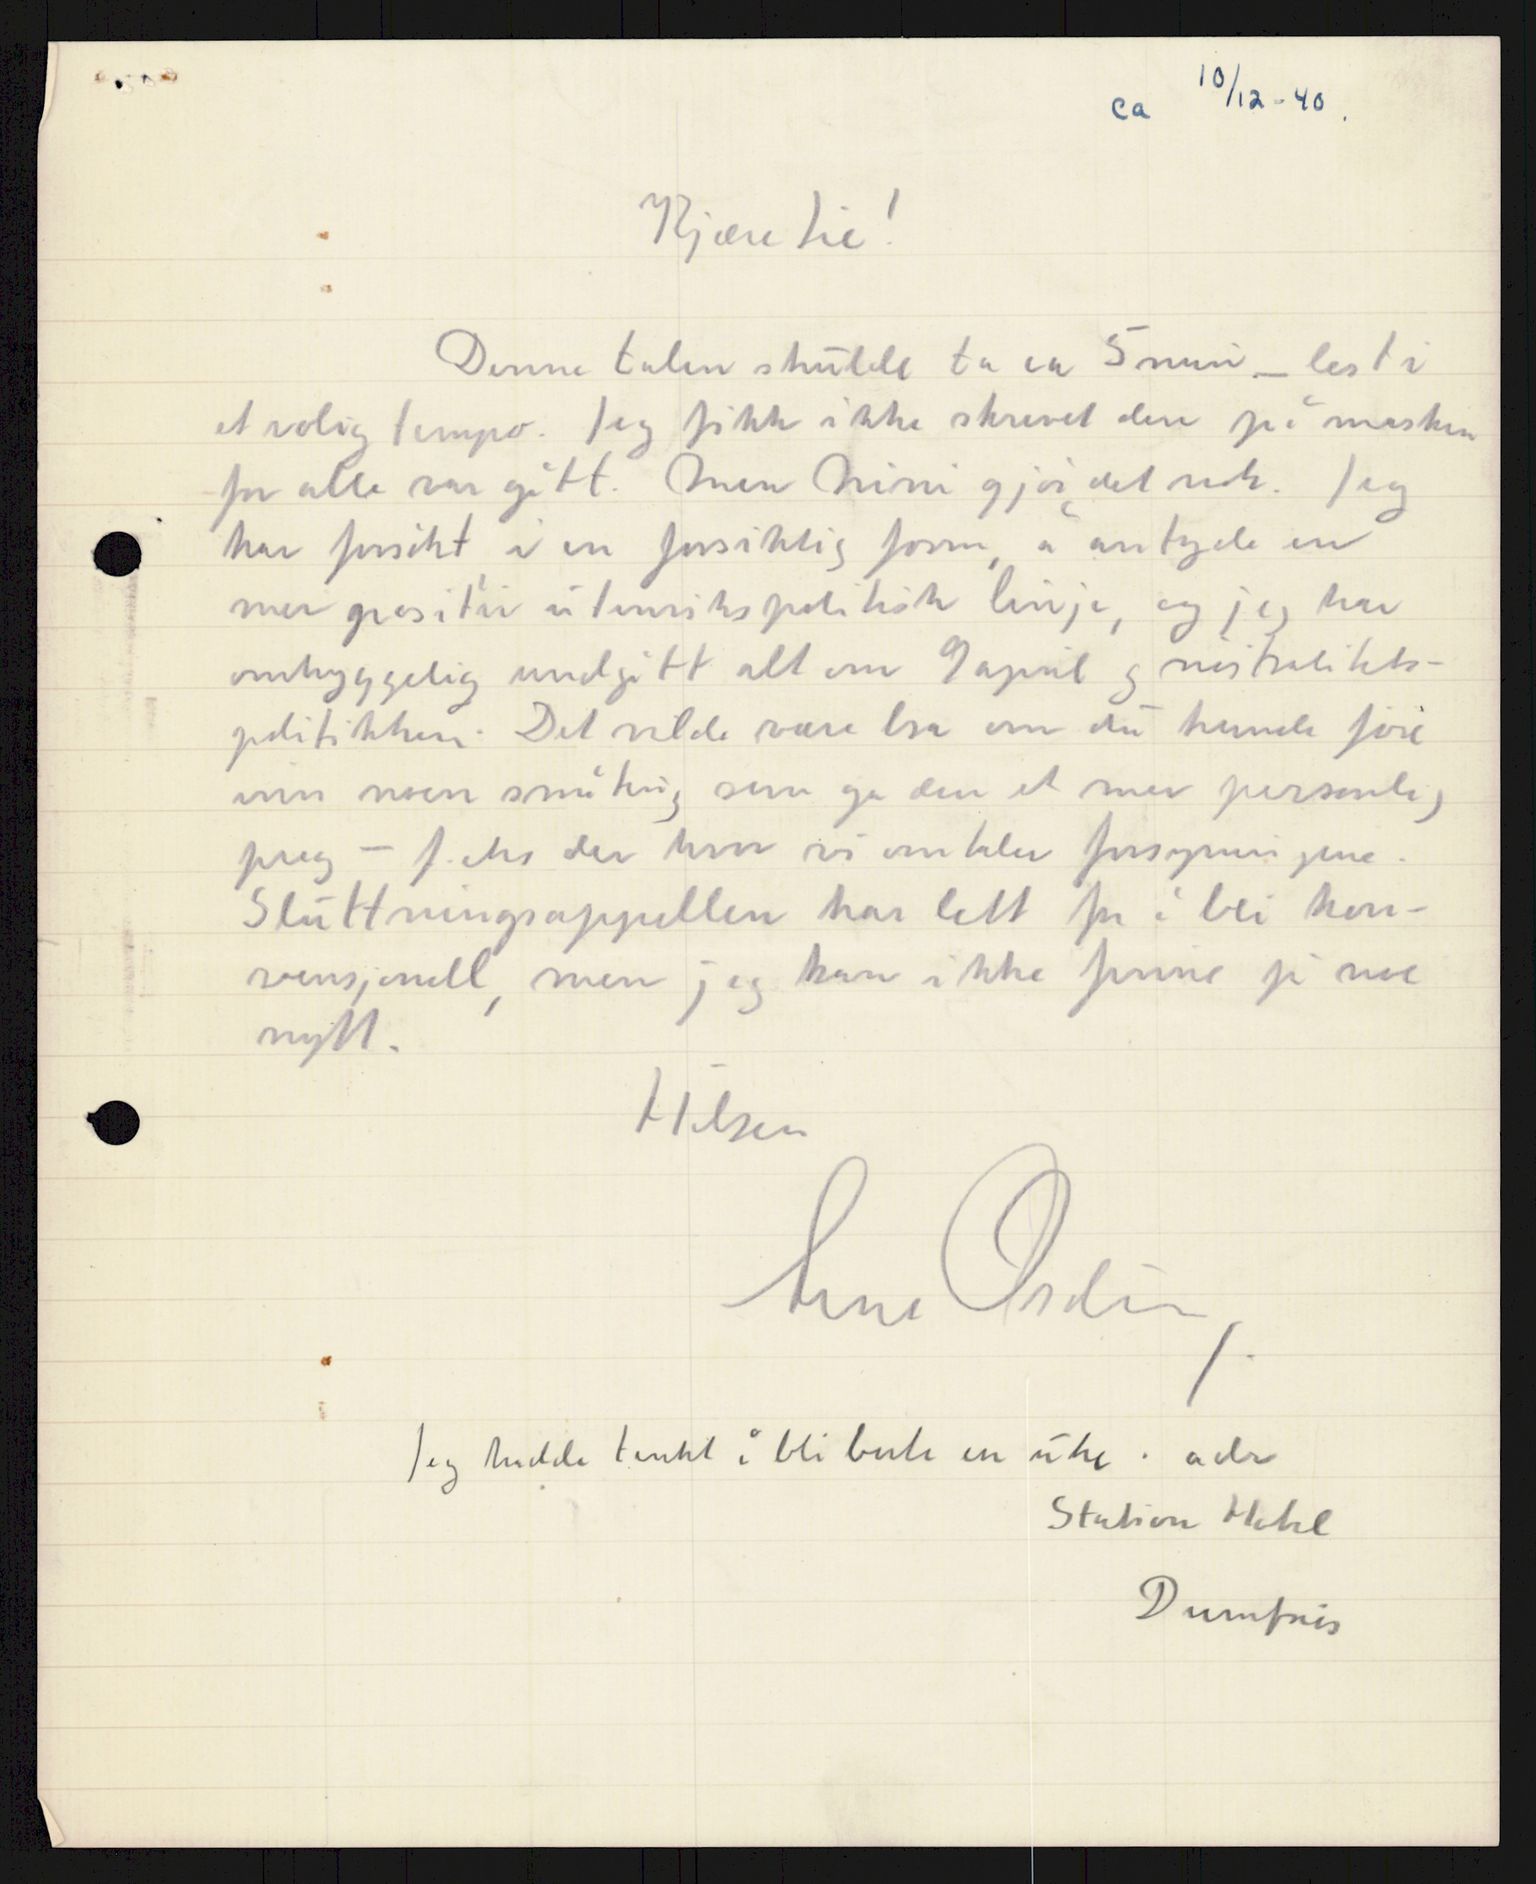 ca 10/12-40.
Kjære Lie!
Denne talen skulde ta ca 5 min – lest i
et rolig tempo. Jeg fikk ikke skrevet den på maskin
for alle var gått. Men Nini gjør det nok. Jeg
har forsøkt, i en forsiktig form, å antyde en
mer positiv utenrikspolitisk linje, og jeg har
omhyggelig undgått alt om 9 april og nøitralitets-
politikken. Det vilde være bra om du kunde føie
inn noen småting som ga den et mer personlig
preg – f. eks der hvor vi omtaler forsyningene.
Sluttningsappellen har lett for å bli kon-
vensjonell, men jeg kan ikke finne på noe
nytt.
Hilsen
Arne Ording
Jeg hadde tenkt å bli borte en uke. adr
Station Hotel
Dumfries